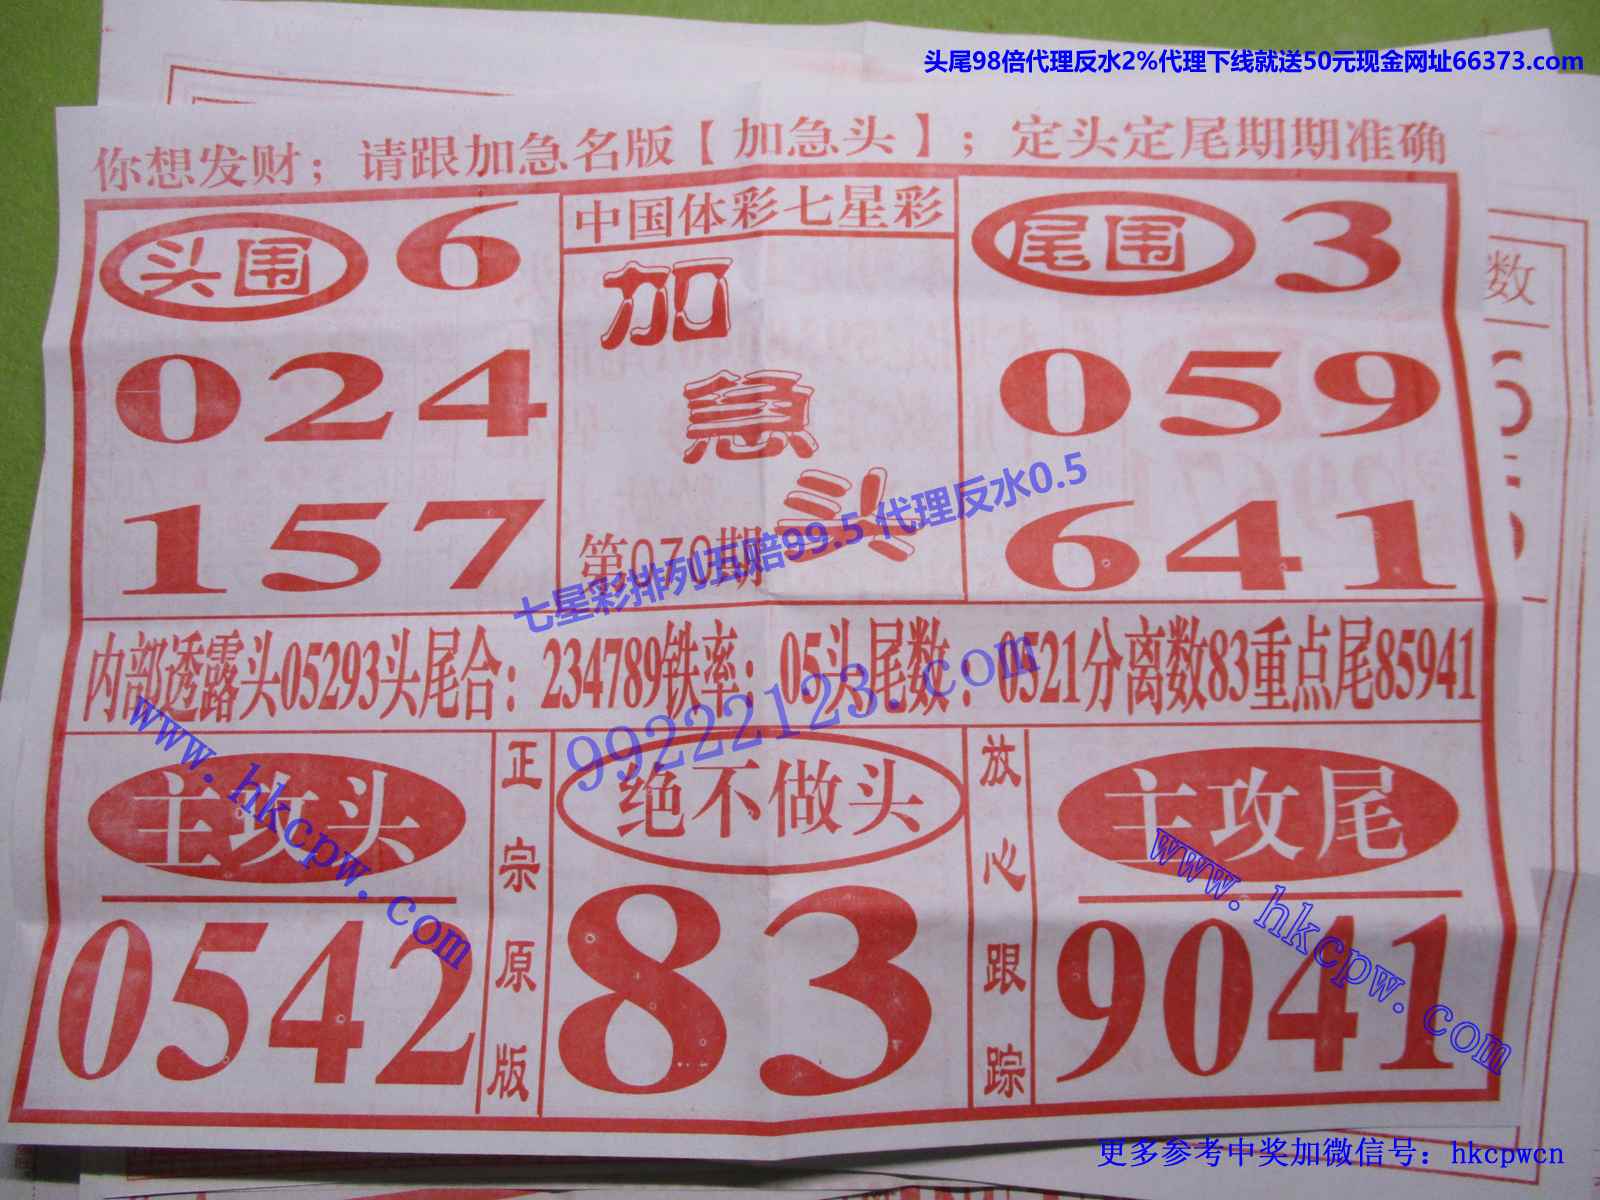 头尾98倍代理反水2%代理下线就送50元现金网址66373.com
你想发财；请跟加急名版【加急头】；定头定尾期期准确
头围 6
024
157
中国体彩七星彩
加
急
头
第070期
七星彩排列五赔99.5 代理反水0.5
尾围 3
059
641
数
内部透露头05293头尾合：234789铁率；05头尾数：0521分离数83重点尾85941
99222123.com
www.hkcpw.com
主攻头
0542
正宗原版
绝不做头
83
放心跟踪
主攻尾
9041
www.hkcpw.com
更多参考中奖加微信号：hkcpwcn